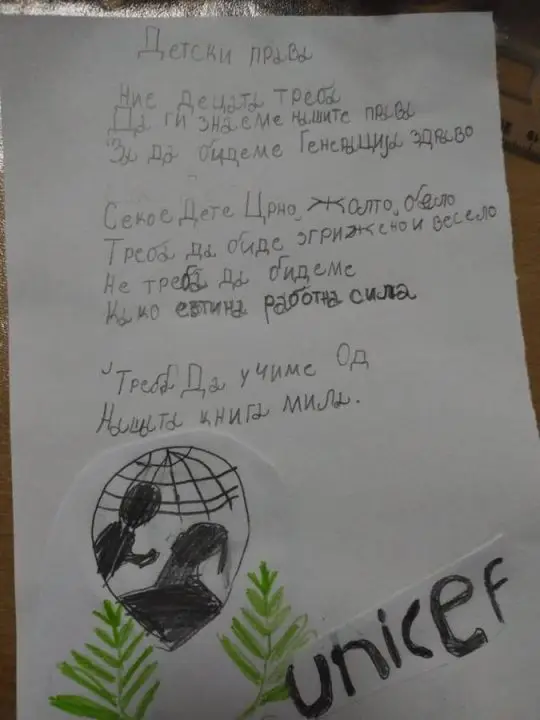 Детски права
Ние децата треба
Да ги знаеме нашите права
За да бидеме Генерација здраво
Секое Дете Црно, Жолто, бело
Треба да биде згрижено и весело
Не треба да бидеме
Како евтина работна сила
Треба Да учиме Од
Нашата книга мила.
unicef